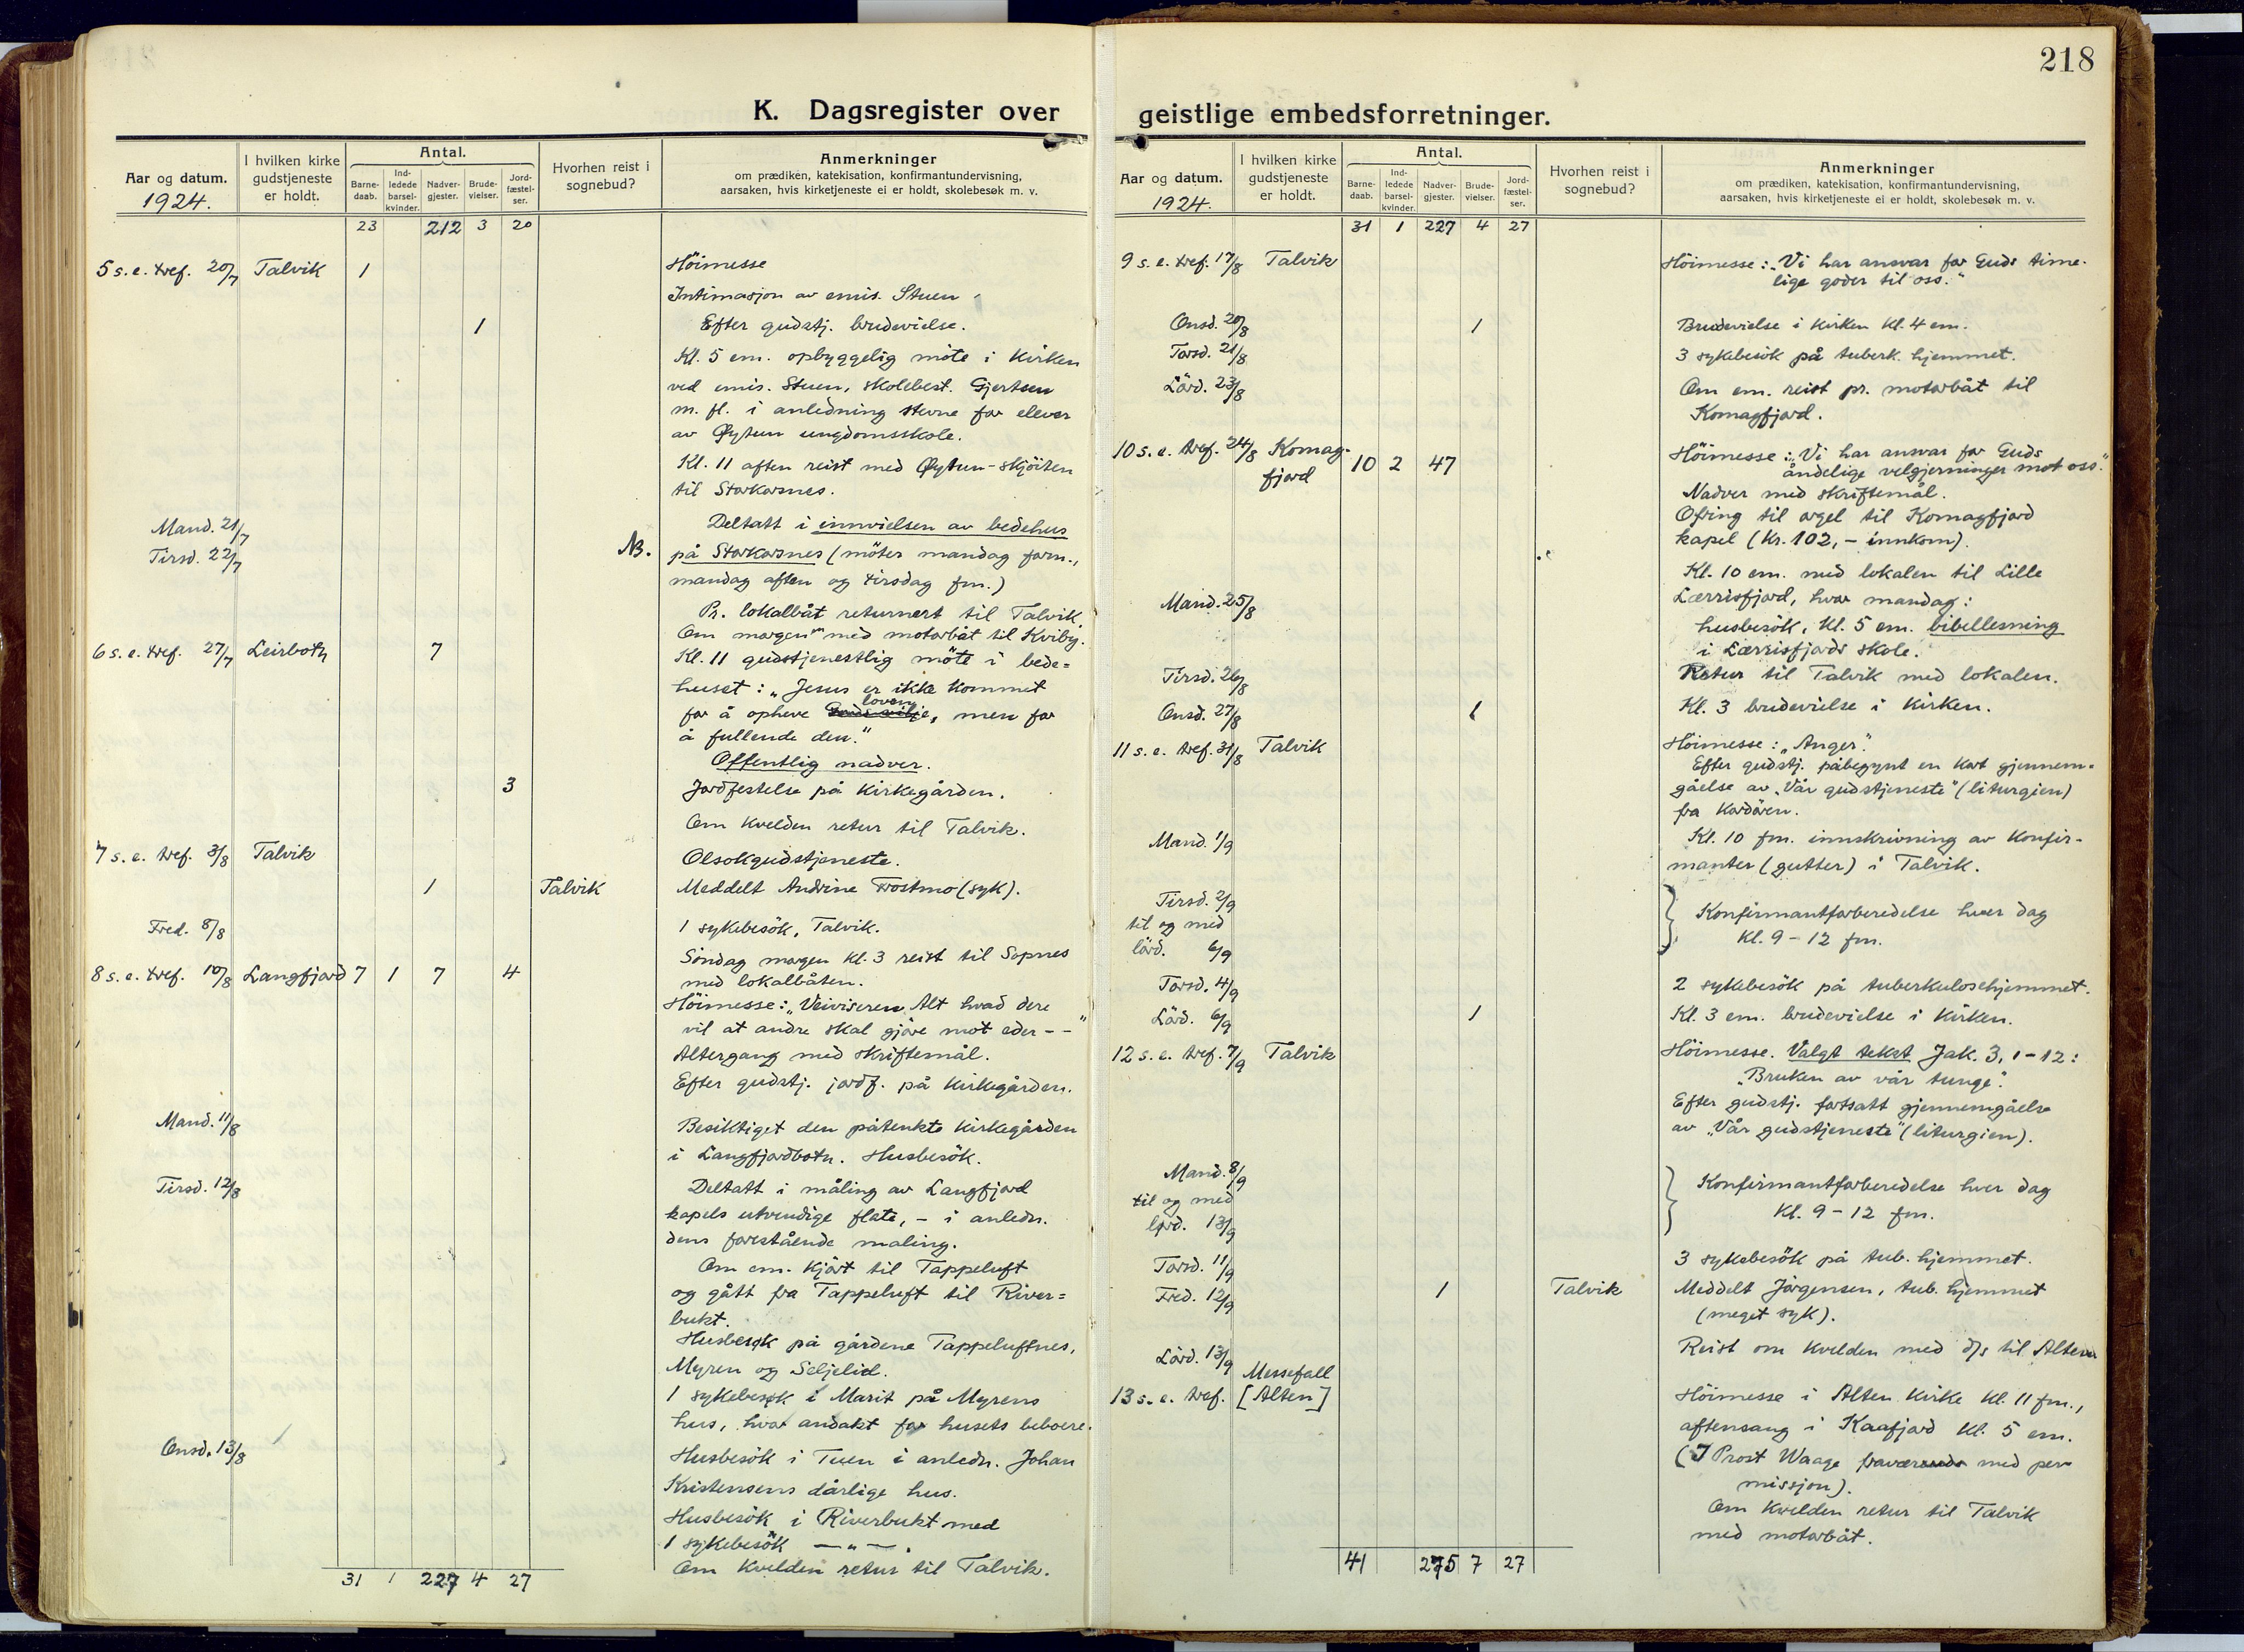 218
K. Dagsregister over
Aar og datum.
1924.
I hvilken kirke gudstjeneste er holdt.
Antal.
Barne-daab.
Ind-ledede barsel-kvinder.
Nadver-gjester.
Brude-vielser.
Jord-fæstel-ser.
Hvorhen reist i sognebud?
Anmerkninger
om prædiken, katekisation, konfirmantundervisning,
aarsaken, hvis kirketjeneste ei er holdt, skolebesøk m. v.
23 212 3 20
5 s. e. tref. 20/7 Talvik 1 Höimesse
Intimasjon av emis. Stuen
1 Efter gudstj. brudevielse.
Kl. 5 em. opbyggelig möte i kirken
ved emis. Stuen, skolebest. Gjertsen
m. fl. i anledning stevne for elever
av Øytun ungdomsskole.
Kl. 11 aften reist med Øytun-skjöiten
til Storkorsnes.
Mand. 21/7 Deltatt i innvielsen av bedehus
Tirsd. 22/7 NB. på Storkorsnes (möter mandag form.,
mandag aften og tirsdag fm.)
Pr. lokalbåt returnert til Talvik.
Om morgen med motorbåt til Kviby.
6 s. e. tref. 27/7 Leirbotn 7 Kl. 11 gudstjenestlig möte i bede=
huset: „Jesus er ikke kommet
for å opheve Guds vilje loven, men for
å fullende den."
Offentlig nadver.
3 Jordfestelse på kirkegården.
Om kvelden retur til Talvik.
7 s. e. tref. 3/8 Talvik Olsokgudstjeneste.
1 Talvik Meddelt Andrine Frostmo (syk).
Fred. 8/8 1 sykebesök, Talvik.
Söndag morgen kl. 3 reist til Sopnes
8 s. e. tref. 10/8 Langfjord 7 1 7 4 med lokalbåten.
Höimesse: „Veiviseren. Alt hvad dere
vil at andre skal gjöre mot eder - -"
Altergang med skriftemål.
Efter gudstj. jordf. på kirkegården.
Mand. 11/8 Besiktiget den påtenkte kirkegården
i Langfjordbotn. Husbesök.
Tirsd. 12/8 Deltatt i måling av Langfjord
kapels utvendige flate, - i anledn.
dens forestående maling.
Om em. kjört til Tappeluft
og gått fra Tappeluft til River=
bukt.
Husbesøk på gårdene Tappeluftnes,
Myren og Seljelid.
1 sykebesøk i Marit på Myrens
hus, hvor andakt for husets beboere.
Onsd. 13/8 Husbesök i Tuen i anledn. Johan
Kristensens dårlige hus.
Husbesök i Riverbukt med
1 sykebesök — „ — .
Om kvelden retur til Talvik.
31 1 227 4 27
geistlige embedsforretninger.
Aar og datum.
1924.
I hvilken kirke gudstjeneste er holdt.
Antal.
Barne-daab.
Ind-ledede barsel-kvinder.
Nadver-gjester.
Brude-vielser.
Jord-fæstel-ser.
Hvorhen reist i sognebud?
Anmerkninger
om prædiken, katekisation, konfirmantundervisning,
aarsaken, hvis kirketjeneste ei er holdt, skolebesøk m. v.
31 1 227 4 27
9 s. e. tref. 17/8 Talvik Höimesse: „Vi har ansvar for Guds time-
lige goder til oss."
Onsd. 20/8 1 Brudevielse i kirken kl. 4 em.
Torsd. 21/8 3 sykebesök på tuberk. hjemmet.
Lörd. 23/8 Om em. reist pr. motorbåt til
Komagfjord.
10 s. e. tref. 24/8 Komag-fjord 10 2 47 Höimesse: „Vi har ansvar for Guds
åndelige velgjerninger mot oss."
Nadver med skriftemål.
Ofring til orgel til Komagfjord
kapel (kr. 102,- innkom).
Kl. 10 em. med lokalen til Lille
Mand. 25/8 Lerrisfjord, hvor mandag:
husbesök, kl. 5 em. bibellesning
i Lærrisfjord skole.
Tirsd. 26/8 Retur til Talvik med lokalen.
Onsd. 27/8 1 Kl. 3 brudevielse i kirken.
11 s. e. tref. 31/8 Talvik Höimesse: „Anger".
Efter gudstj. påbegynt en kort gjennem=
gåelse av „Vår gudstjeneste" (liturgien)
fra kordören.
Mand. 1/9 Kl. 10 fm. innskrivning av konfir-
manter (gutter) i Talvik.
Tirsd. 2/9
til og med
lörd. 6/9 Konfirmantforberedelse hver dag
kl. 9 - 12 fm.
Torsd. 4/9 2 sykebesök på tuberkulosehjemmet.
Lörd. 6/9 1 Kl. 3 em. brudevielse i kirken.
12 s. e. tref. 7/9 Talvik Höimesse. Valgt tekst Jak. 3, 1-12:
„Bruken av vår tunge".
Efter gudstj. fortsatt gjennemgåelse
av „Vår gudstjeneste" (liturgien).
Mand. 8/9
til og med
lørd. 13/9 Konfirmantforberedelse hver dag
kl. 9 - 12 fm.
Torsd. 11/9 3 sykebesök på tub. hjemmet.
Fred. 12/9 1 Talvik Meddelt Jörgensen, tub. hjemmet
(meget syk).
Lörd. 13/9 Reist om kvelden med d/s til Alten
Messefall
13 s. e. tref. [Alten] Höimesse i Alten kirke kl. 11 fm.,
aftensang i Kaafjord kl. 5 em.
(Prost Waage fraværende med per
missjon).
Om kvelden retur til Talvik
med motorbåt.
41 275 7 27